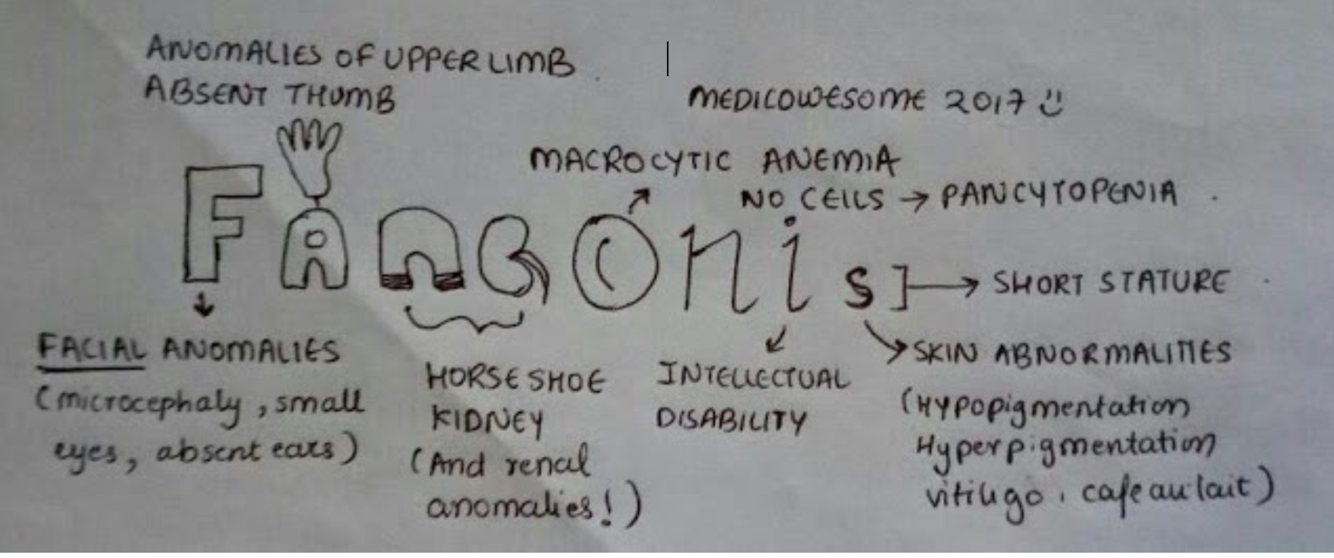 ANOMALIES OF UPPER LIMB
ABSENT THUMB
MEDICOWESOME 2017
MACROCYTIC ANEMIA
NO CELLS → PANCYTOPENIA
FANCONiS
SHORT STATURE
FACIAL ANOMALIES
(microcephaly, small
eyes, absent ears)
HORSE SHOE
KIDNEY
(And renal
anomalies!)
INTELLECTUAL
DISABILITY
SKIN ABNORMALITIES
(HYpopigmentation
Hyperpigmentation
vitiligo, cafe au lait)